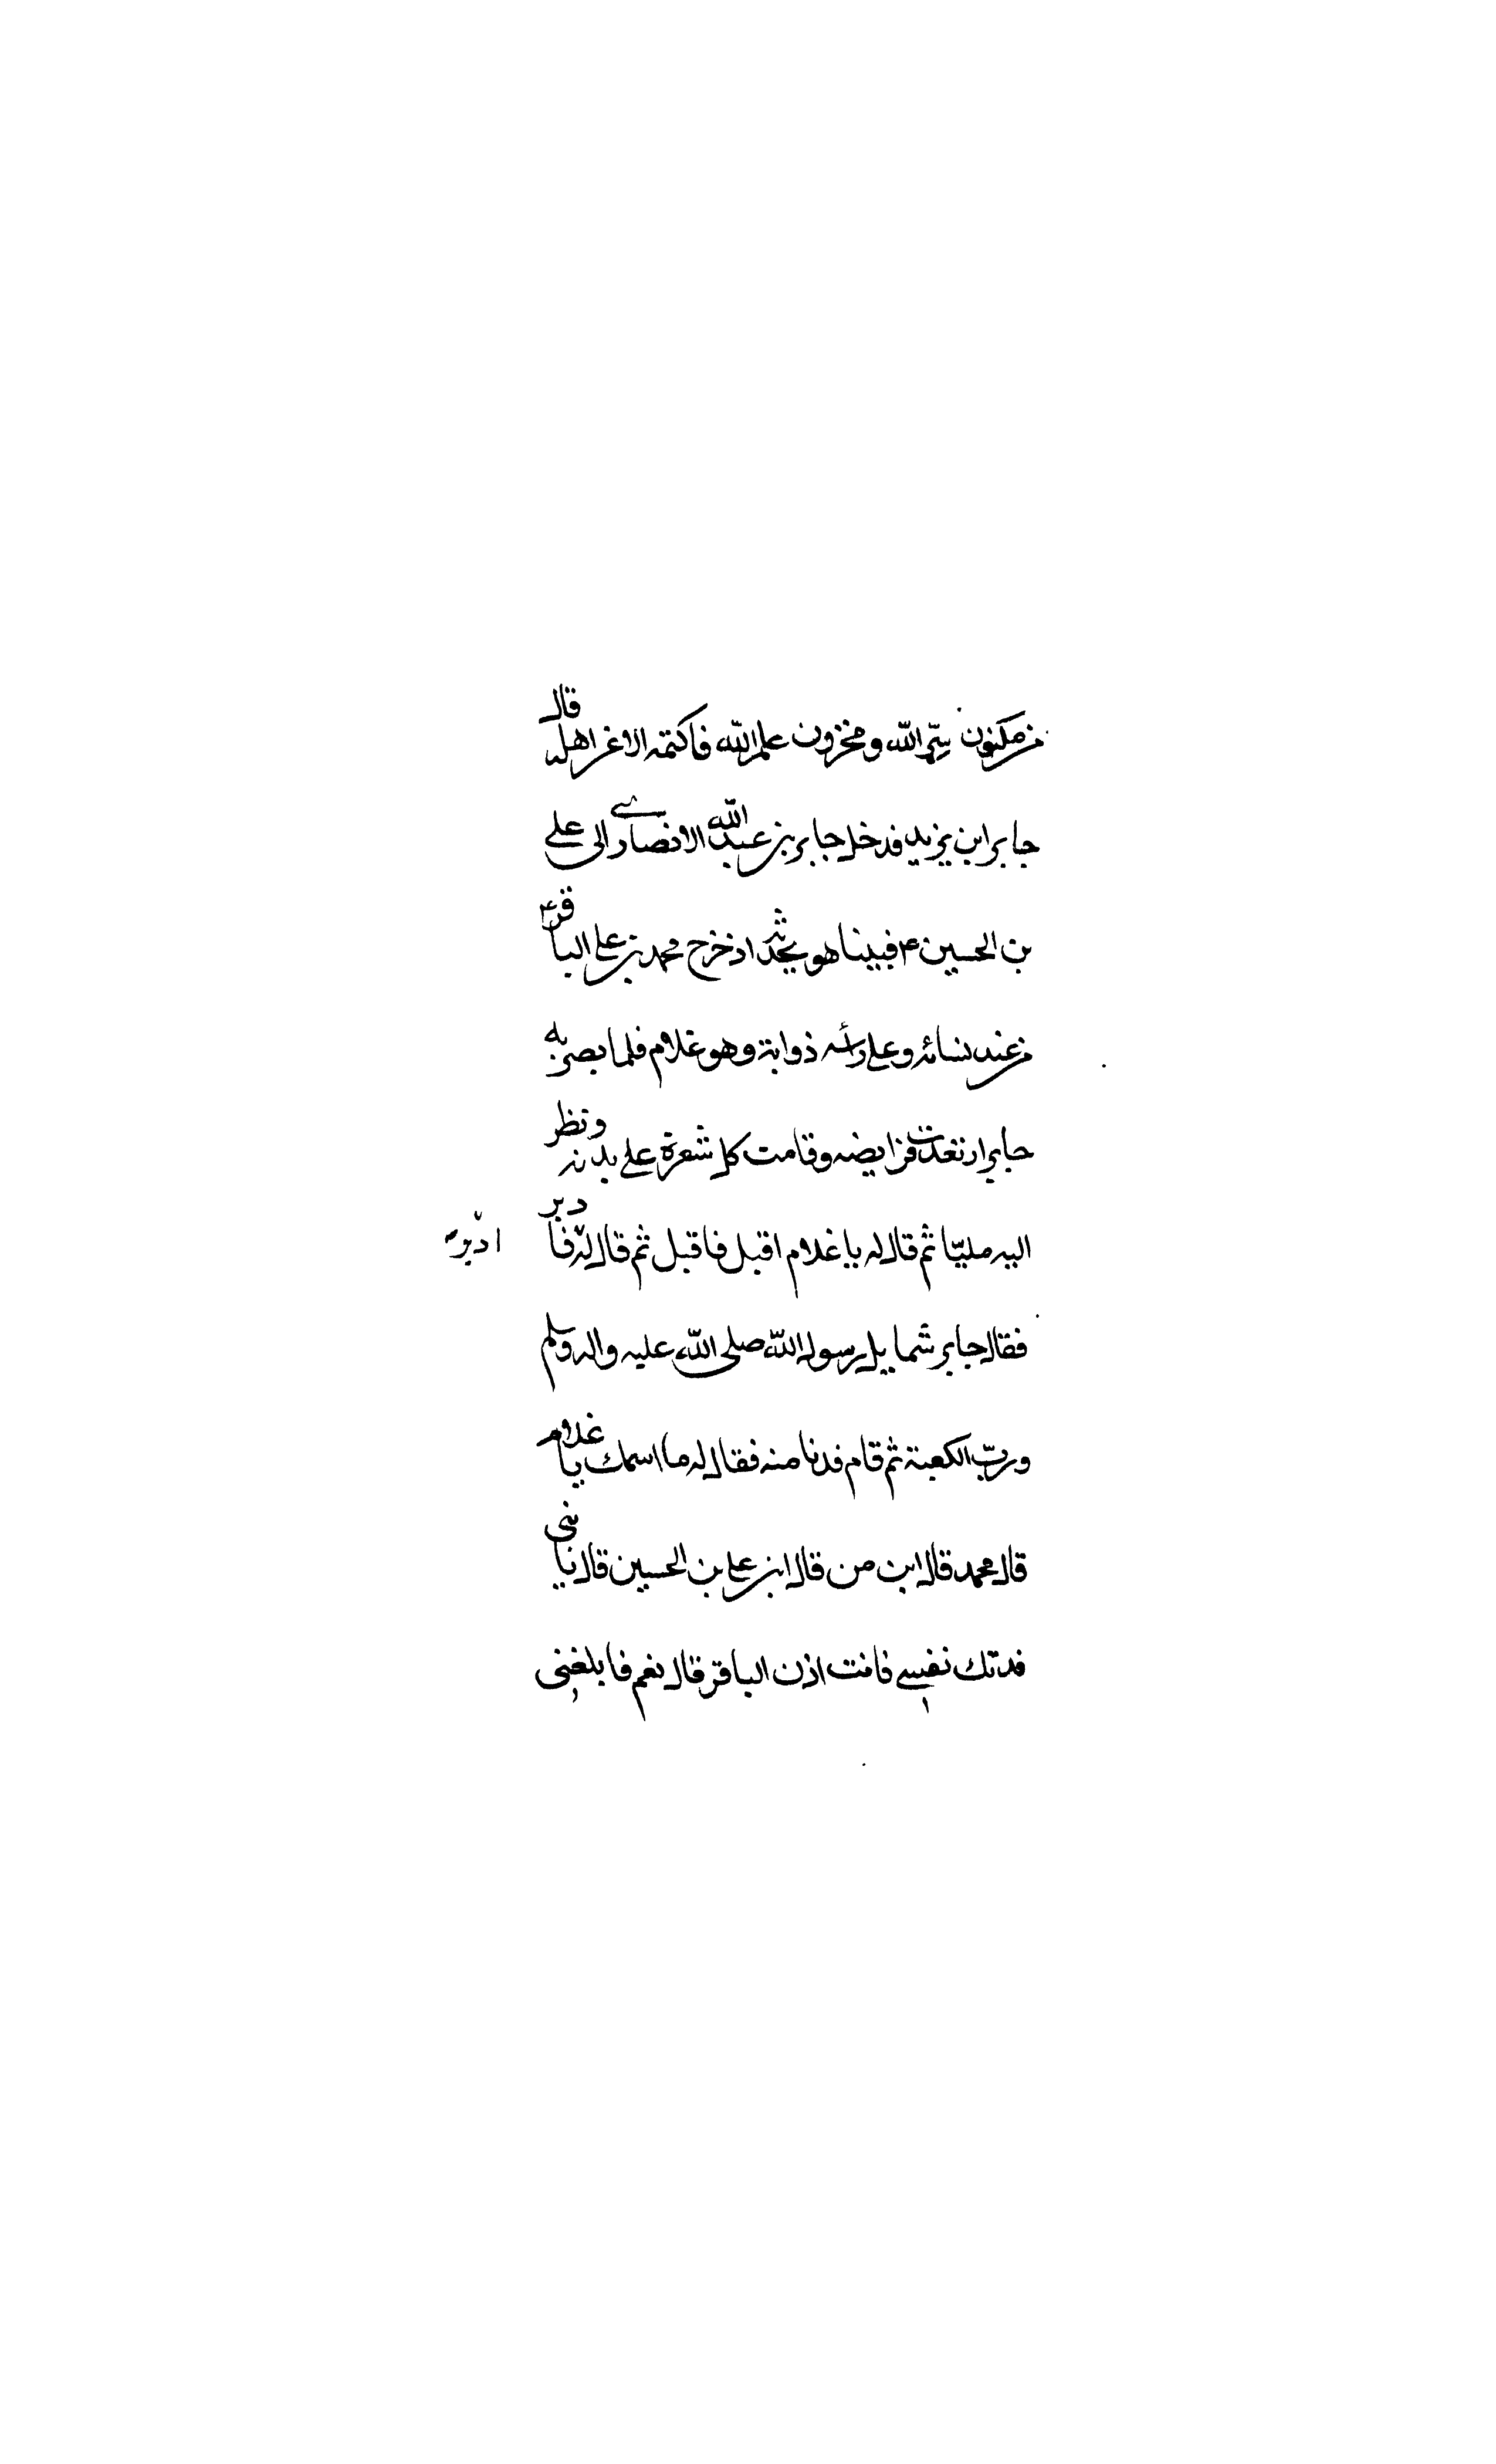 من مكنون سرّ الله ومخزون علم الله فاكتمه الا عن اهله قال
جابر ابن يزيد فدخل جابر بن عبد الله الانصاري الى علي
بن الحسين ع فبينا هو يحدّثه اذ خرج محمد بن علي الباقر ع
من عند نسائه وعلى رأسه ذوابة وهو غلام فلما بصر به
جابر ارتعدت فرايصه وقامت كل شعرة على بدنه ونظر
اليه مليّا ثم قال له يا غلام اقبل فاقبل ثم قال له فادبر
فقال جابر شمايل رسول الله صلى الله عليه واله وسلم
وربّ الكعبة ثم قام فدنا منه فقال له ما اسمك يا غلام
قال محمد قال ابن من قال ابن علي بن الحسين قال يا بني
فدتك نفسي فانت اذن الباقر قال نعم فابلغني